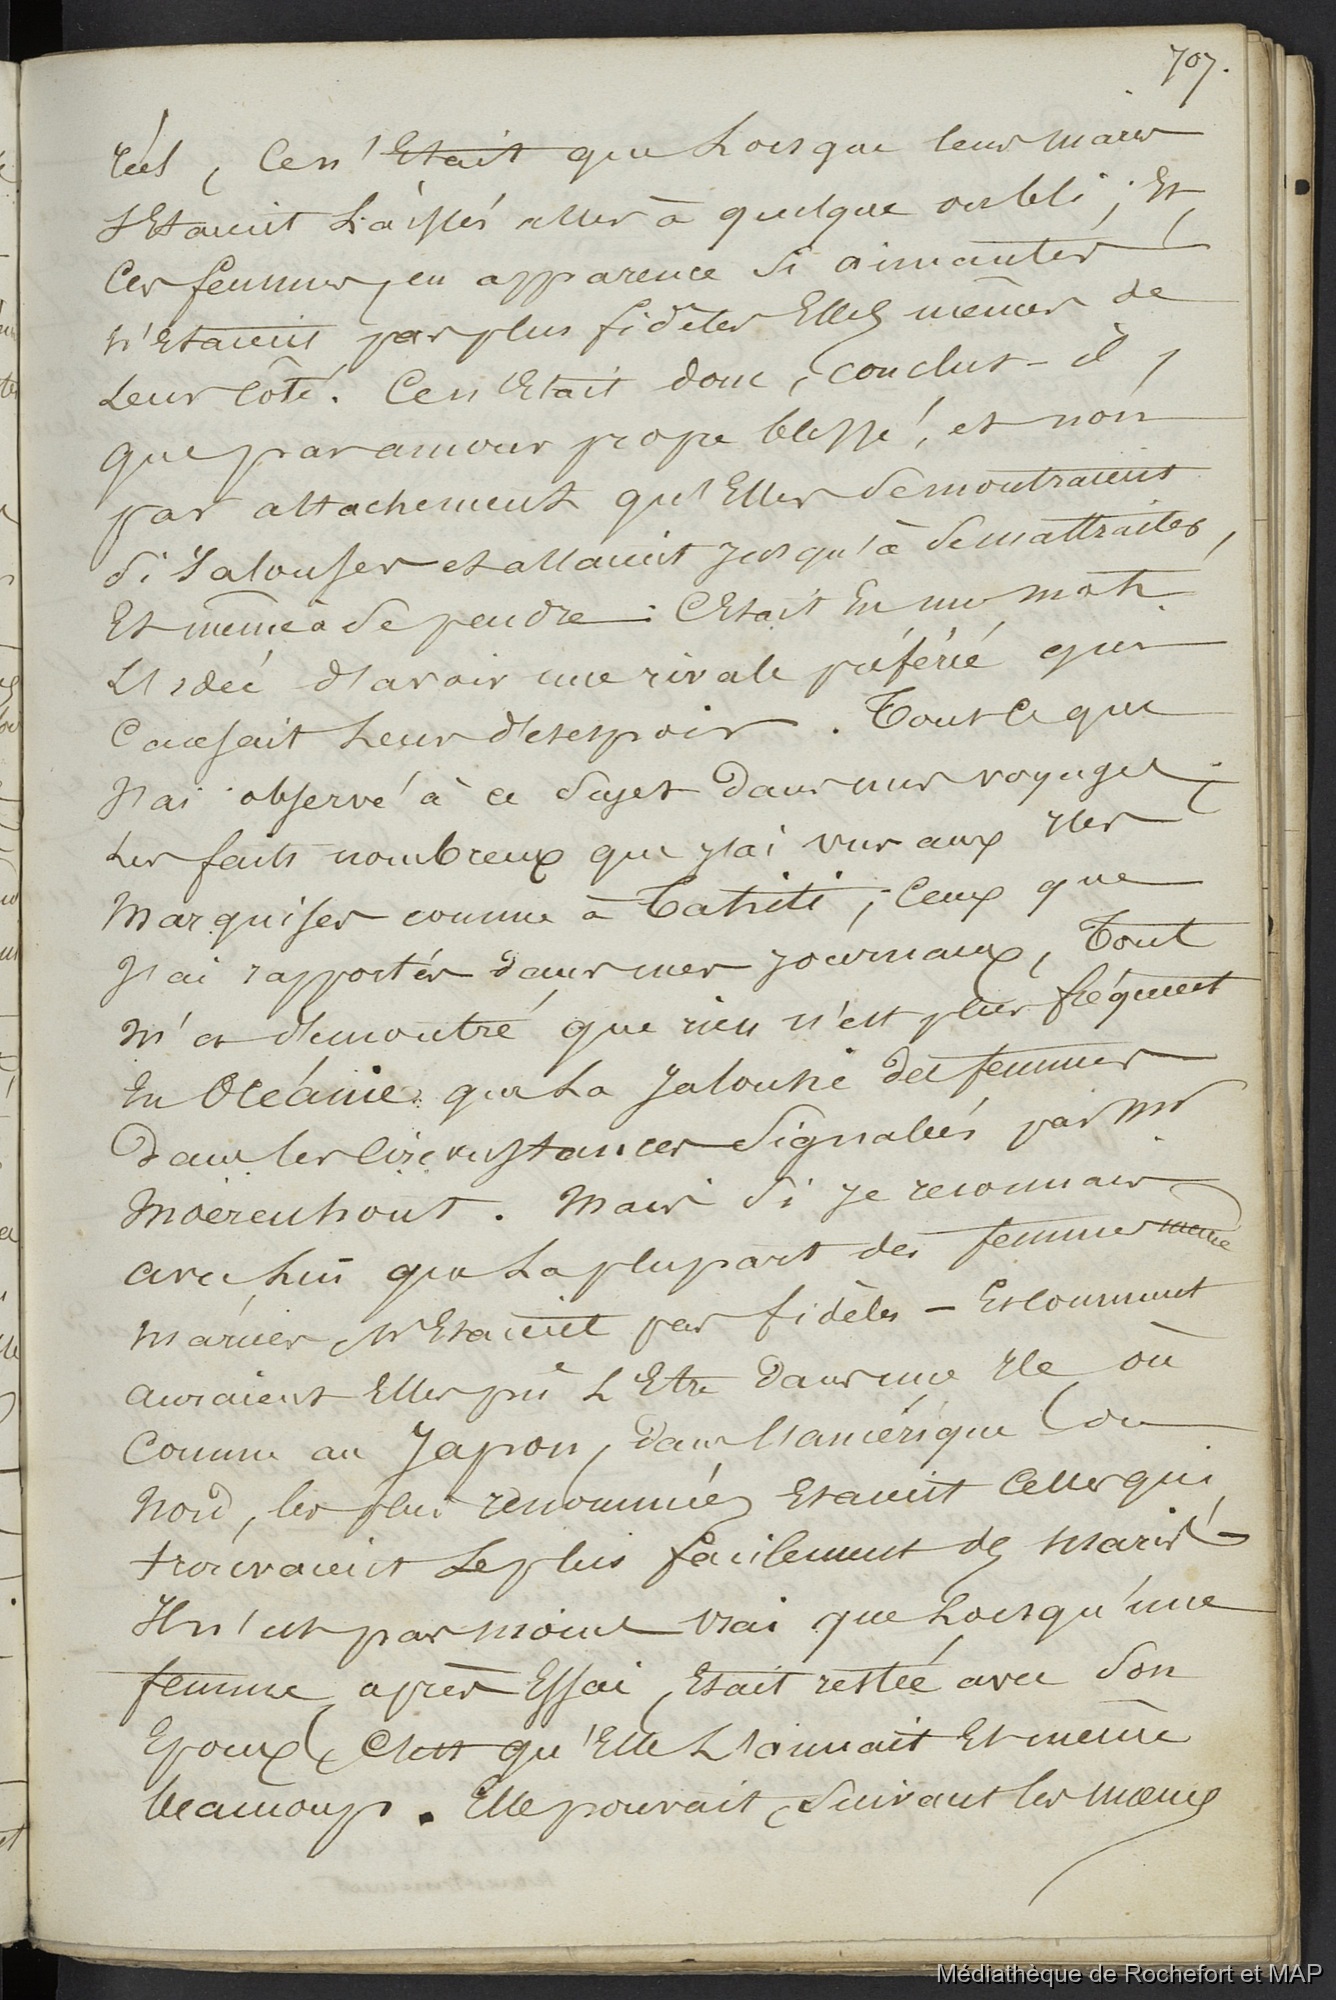 707.
réel, Ce n'Etait que Lorsque leurs maris
S'Etaient Laissés aller à quelque oubli ; Et
Ces femmes, en apparence si aimantes
N'Etaient pas plus fidèles Elles mêmes de
Leur Côté. Ce n'Etait donc, conclut-il,
que par amour propre blessé, et non
par attachement qu'Elles se montraient
Si Jalouses et allaient Jusqu'à se maltraiter,
Et même à se pendre : C'Etait En un mot
L'Idée d'avoir une rivale préférée qui
Causait Leur désespoir. Tout ce que
J'ai observé à ce sujet dans mes voyages
Les faits nombreux que J'ai vus aux Iles
Marquises comme à Tahiti ; Ceux que
J'ai rapportés dans mes Journaux, Tout
M'a démontré que rien n'est plus fréquent
En Océanie que La Jalousie des femmes
Dans les Circonstances Signalées par Mr
Moerenhout. Mais Si Je reconnais
avec Lui que La plupart des femmes même
Mariées N'Etaient pas fidèles - Et comment
auraient Elles pu L'Etre Dans une Ile où
Comme au Japon, dans L'amérique du
Nord, les plus renommées Etaient Celles qui
trouvaient Le plus facilement des Maris -
Il n'est pas moins vrai que Lorsqu'une
femme après Essai, Etait restée avec son
Epoux, C'est qu'Elle L'aimait Et même
beaucoup. Elle pouvait, Suivant les mœurs
Médiathèque de Rochefort et MAP